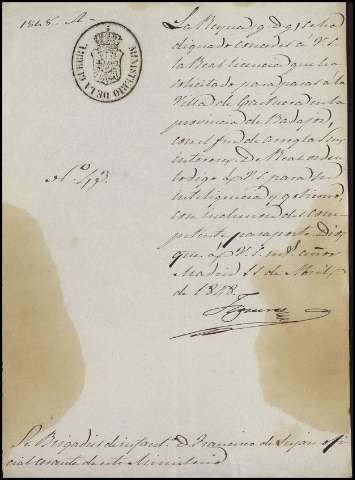 1848. A.
MINISTERIO DE LA GUERRA.
La Reyna q. D. g. se ha
dignado conceder á V. S.
la Real licencia que ha
solicitado para pasar á la
Villa de Castuera en la
provincia de Badajoz,
con el fin de arreglar sus
intereses. De Real orden
lo digo á V. S. para su
inteligencia y gobierno,
con inclusion del com-
petente pasaporte. Dios
gue. á V. S. ms. años
Madrid 11 de Abril
de 1848.
Figueras
Sr. Brigadier de infantª. D. Francisco de Luján ofi-
cial cesante de este Ministerio